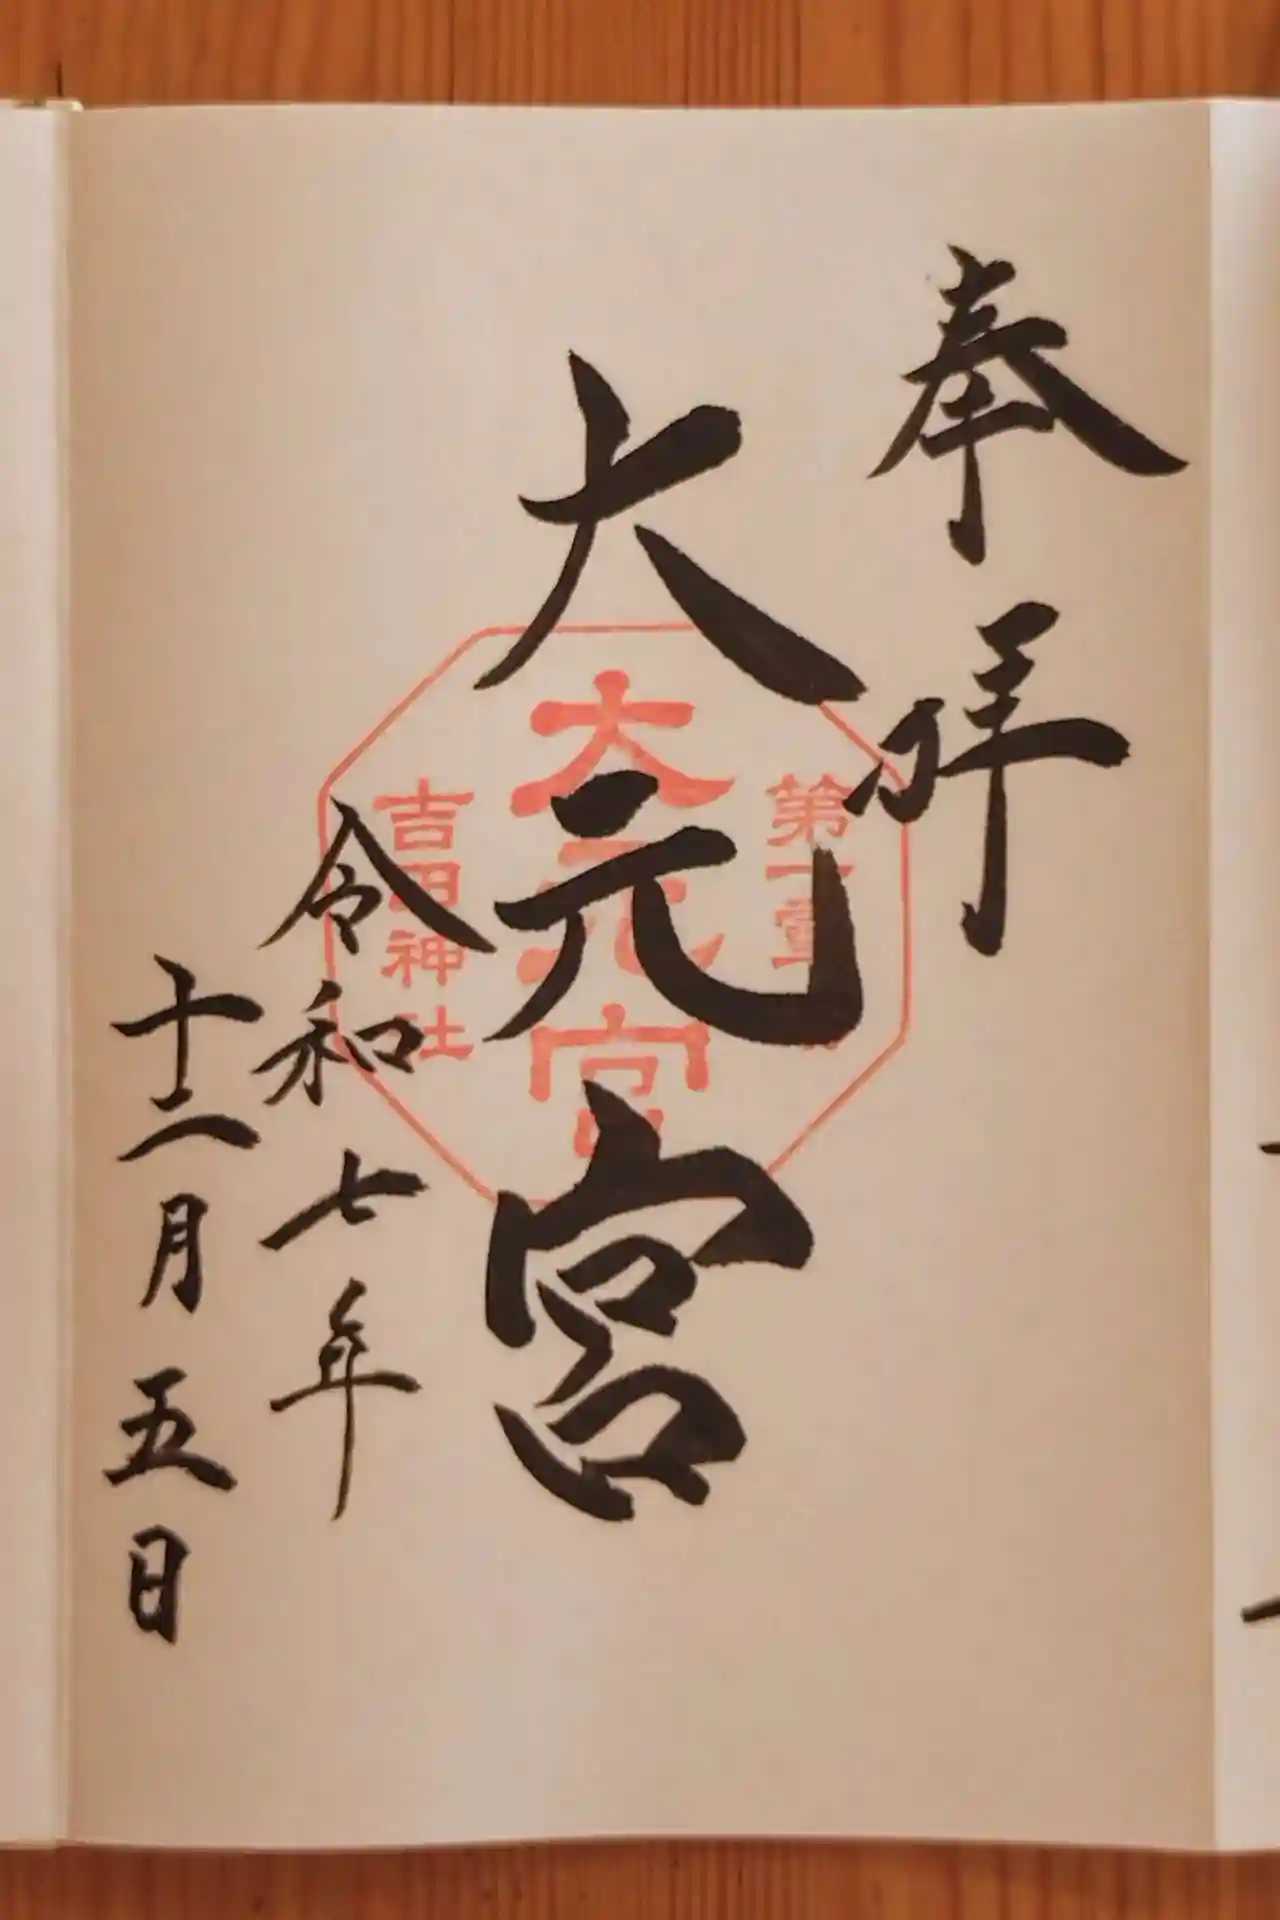 奉拝
大元宮
令和七年
十二月五日
大元宮
吉田神社